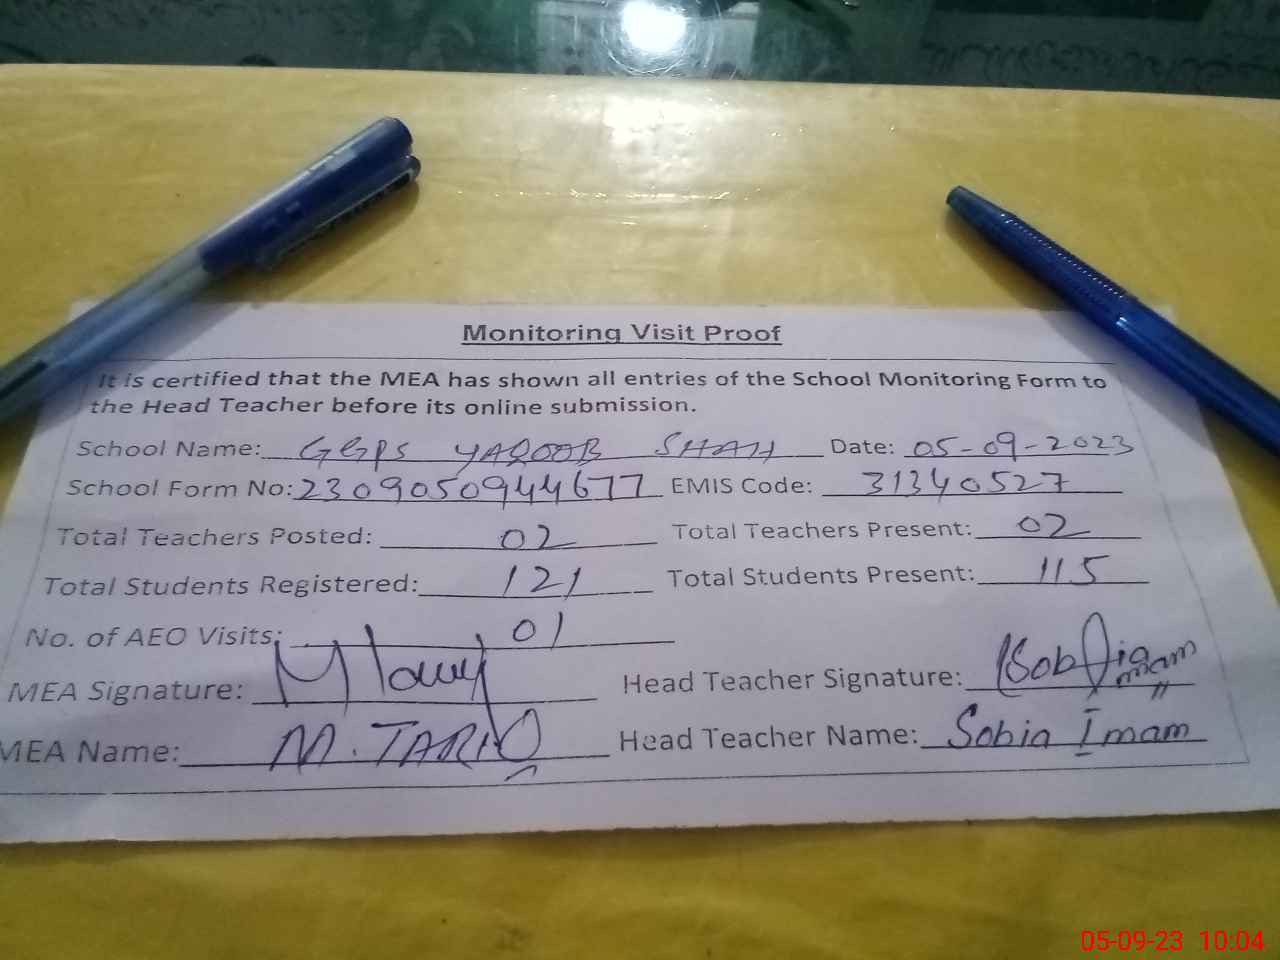 Monitoring Visit Proof
It is certified that the MEA has shown all entries of the School Monitoring Form to
the Head Teacher before its online submission.
School Name: GGPS YAQOOB SHAH Date: 05-09-2023
School Form No: 2309050944677 EMIS Code: 31340527
Total Teachers Posted: 02 Total Teachers Present: 02
Total Students Registered: 121 Total Students Present: 115
No. of AEO Visits: 01
MEA Signature: Head Teacher Signature: Sobia Imam
MEA Name: M. TARIQ Head Teacher Name: Sobia Imam
05-09-23 10:04